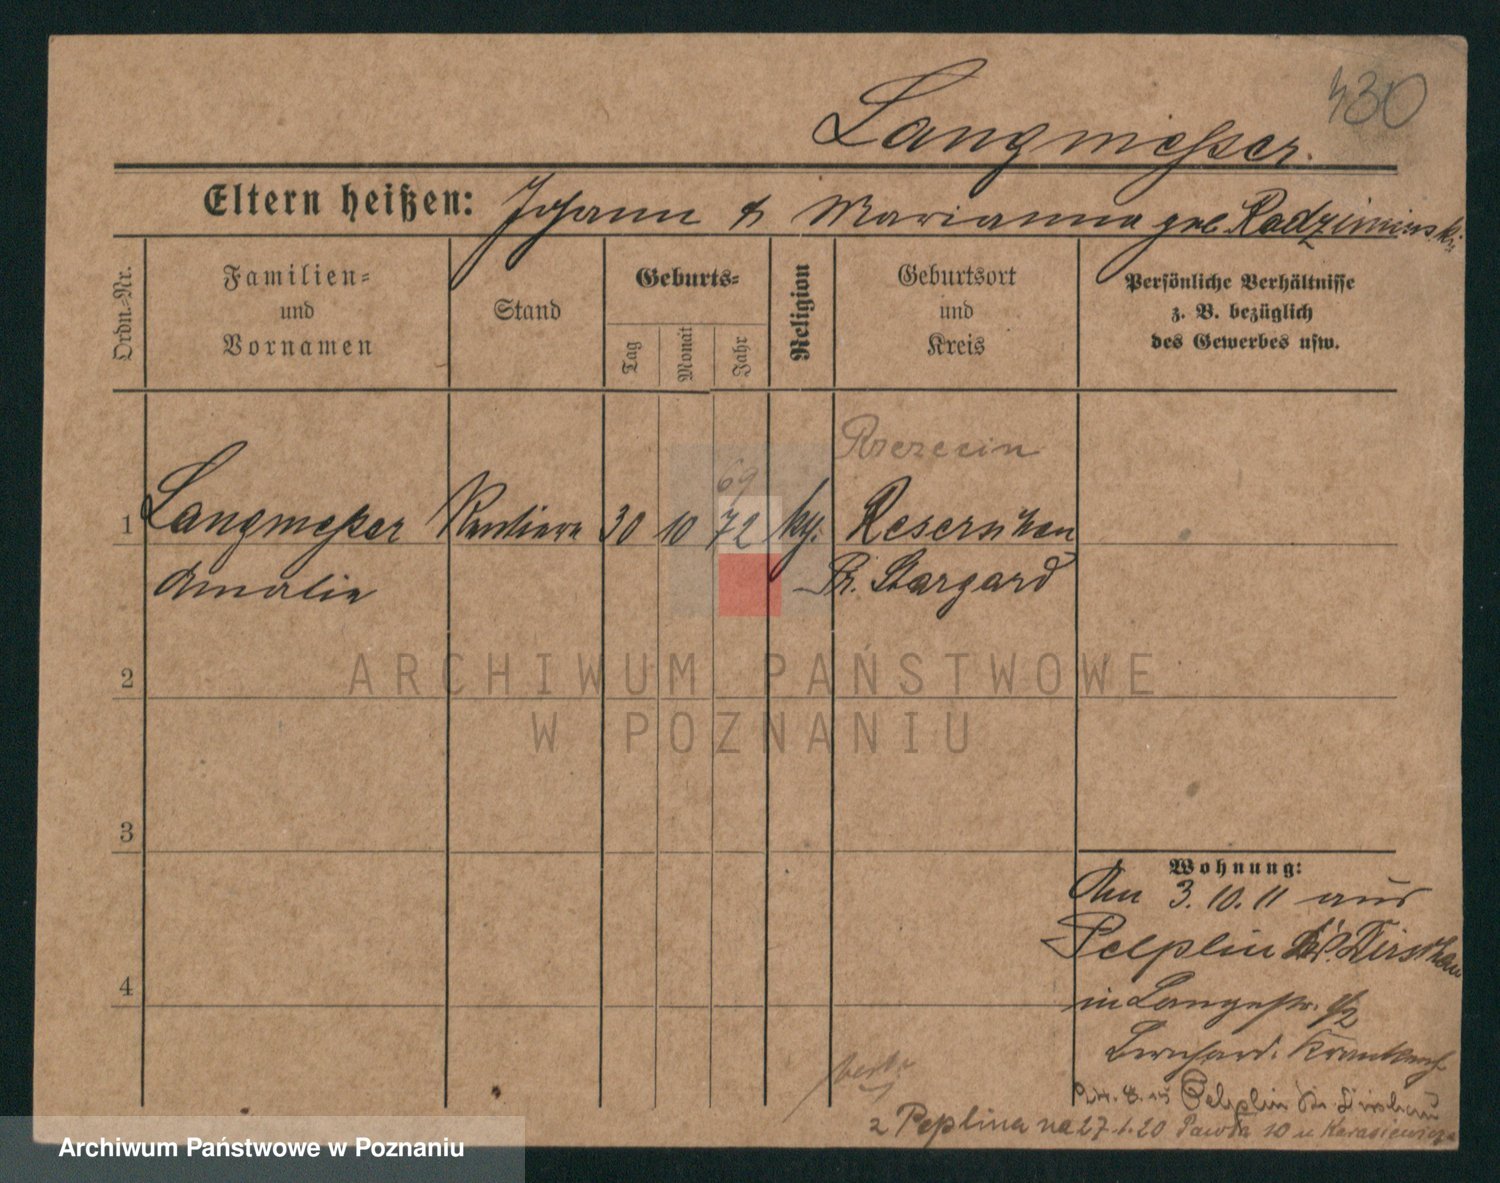 430
Langmesser.
Eltern heißen: Johann & Marianna geb. Radziminski
Ordn.-Nr.
Familien-
und
Vornamen
Stand
Geburts-
Tag
Monat
Jahr
Religion
Geburtsort
und
Kreis
Persönliche Verhältnisse
z. B. bezüglich
des Gewerbes usw.
Rzezecin
69
1 Langmesser Rentiere 30 10 72 Resenschen
Amalie Pr. Stargard
2
ARCHIWUM PAŃSTWOWE
W POZNANIU
3
Wohnung:
3. 10. 11 aus
Pelplin Kr. Dirschau
4
in Langestr. 1/2
Bernhard. Krankenh.
Pelplin Kr. Dirschau
z Peplina na 27.1.20 Pawła 10 u Karasiewicza
Archiwum Państwowe w Poznaniu